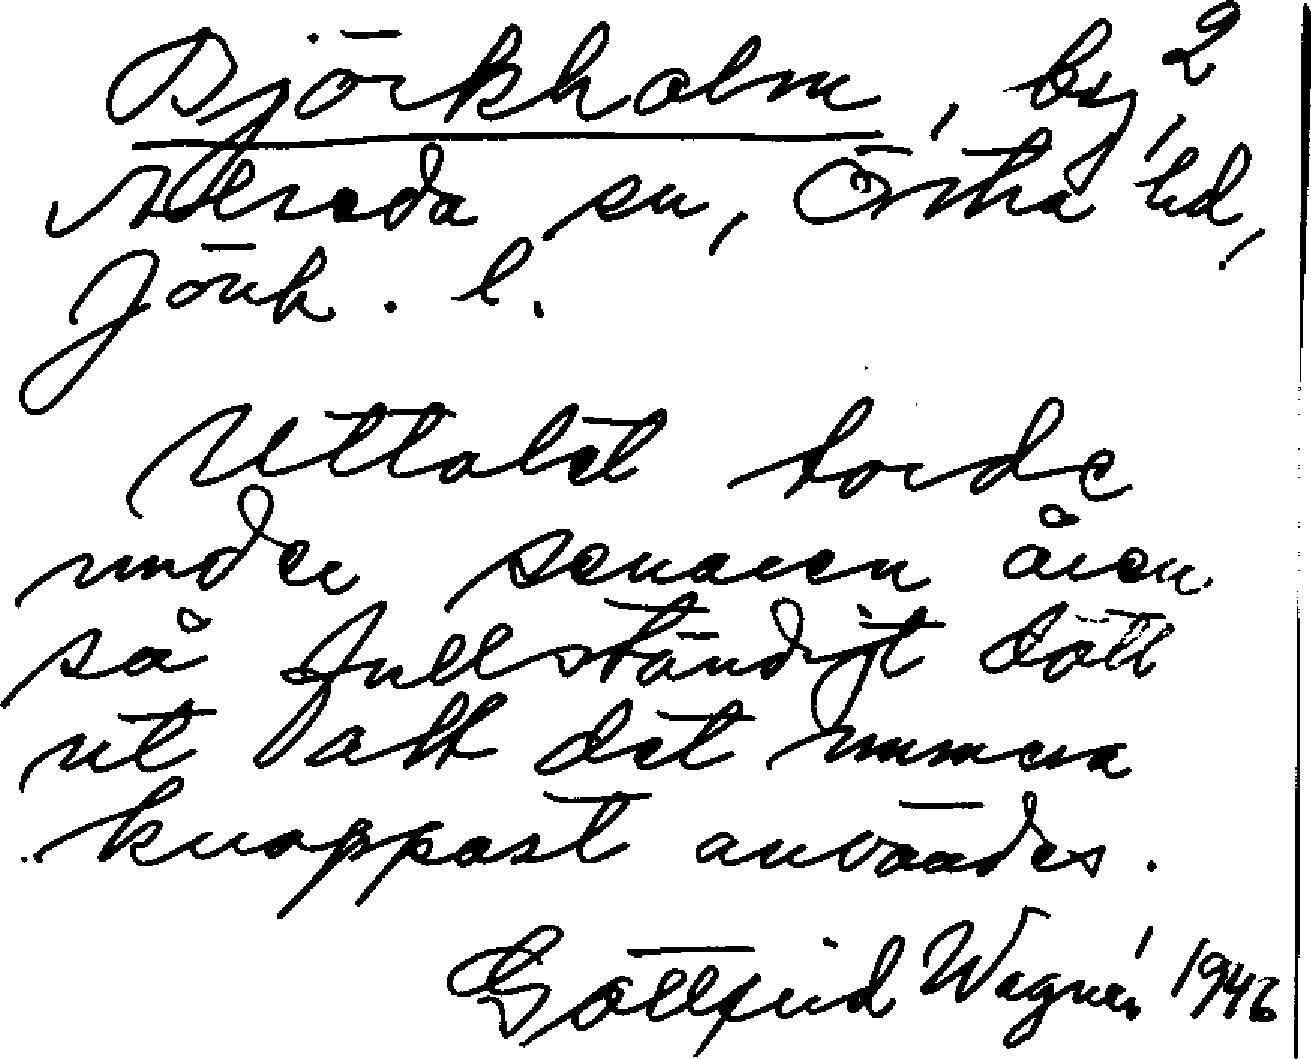 Björkholm, by, 2
Alseda sn, Östra hd,
Jönk. l.
Uttalet torde
under senaren åren
så fullständigt dött
ut att det numera
knappast användes.
Gottfrid Wagnér 1946